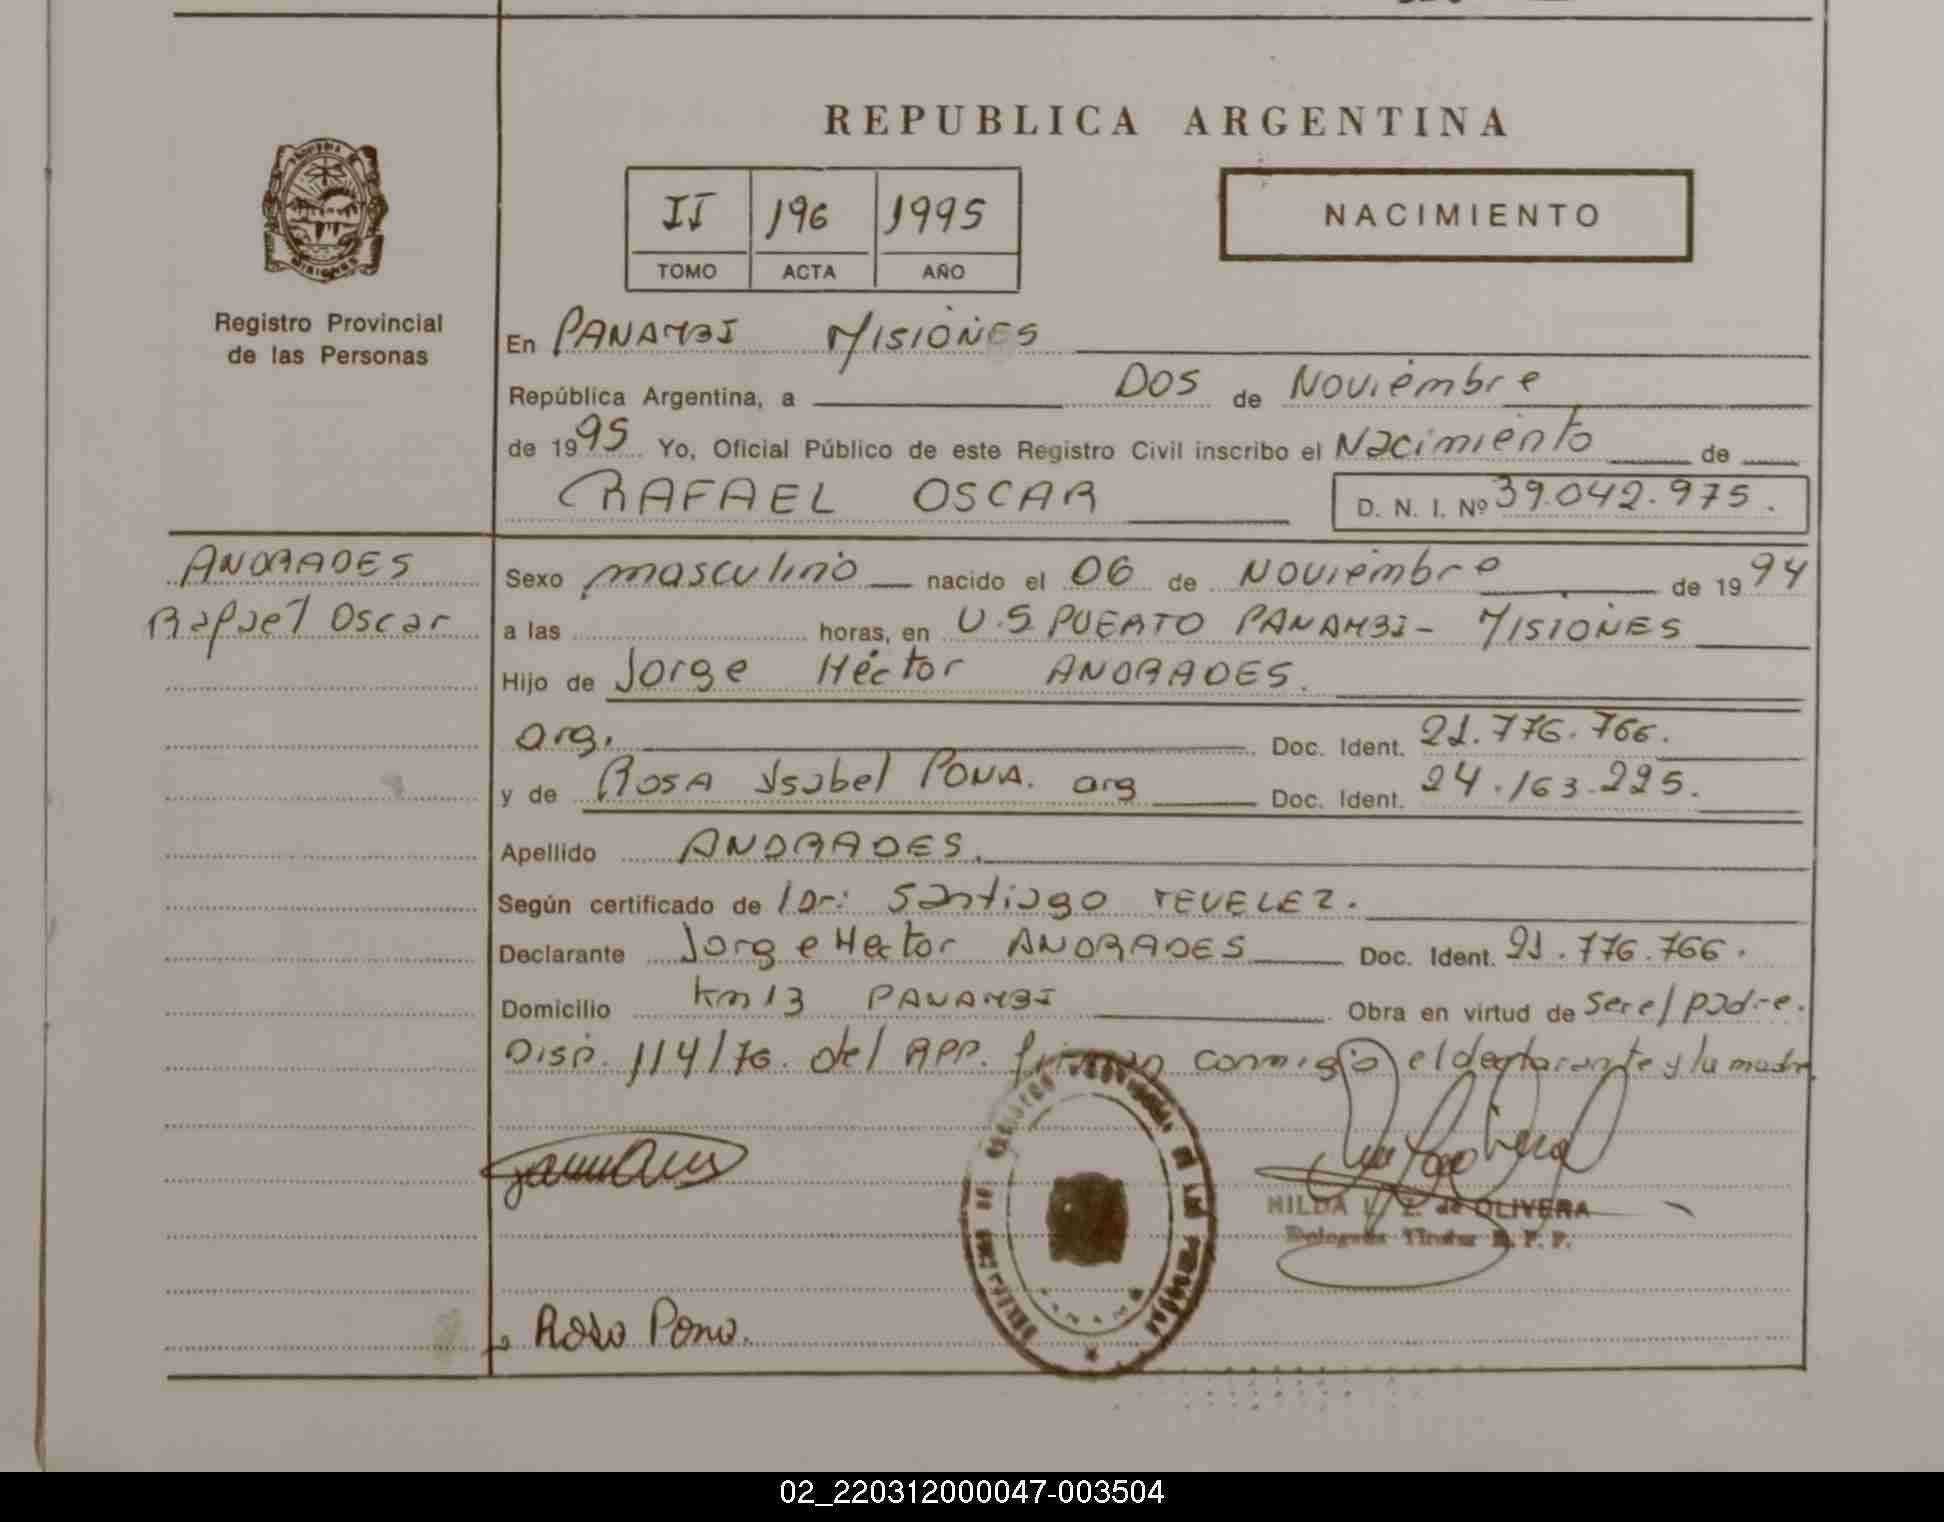 REPUBLICA ARGENTINA
II 196 1995
TOMO ACTA AÑO
NACIMIENTO
MISIONES
Registro Provincial
de las Personas
En PANAMBI MISIONES
República Argentina, a DOS de Noviembre
de 1995 Yo, Oficial Público de este Registro Civil inscribo el Nacimiento de
RAFAEL OSCAR D. N. I. Nº 39.042.975.
ANDRADES
Rafael Oscar
Sexo masculino nacido el 06 de Noviembre de 1994
a las horas, en U.S. PUERTO PANAMBI - MISIONES
Hijo de Jorge Héctor ANDRADES.
arg. Doc. Ident. 21.776.766.
y de ROSA Ysabel PONA. arg Doc. Ident. 24.163.225.
Apellido ANDRADES.
Según certificado de Dr: Santiago TEVELEZ.
Declarante Jorge Hector ANDRADES Doc. Ident. 21.776.766.
Domicilio km 13 PANAMBI Obra en virtud de ser el padre.
Disp. 114/76. del RPP. firman conmigo el declarante y la madre
HILDA L. Z. de OLIVERA
Delegada Titular R. P. P.
Rosa Pona.
02_220312000047-003504